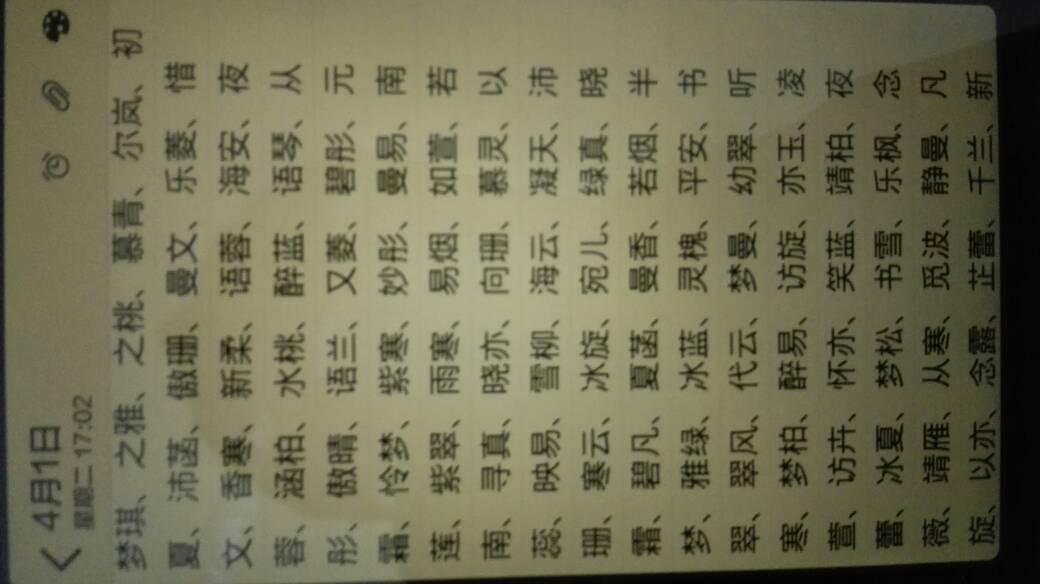 4月1日
星期二 17:02
梦琪、之雅、之桃、慕青、尔岚、初
夏、沛菡、傲珊、曼文、乐菱、惜
文、香寒、新柔、语蓉、海安、夜
蓉、涵柏、水桃、醉蓝、语琴、从
彤、傲晴、语兰、又菱、碧彤、元
霜、怜梦、紫寒、妙彤、曼易、南
莲、紫翠、雨寒、易烟、如萱、若
南、寻真、晓亦、向珊、慕灵、以
蕊、映易、雪柳、海云、凝天、沛
珊、寒云、冰旋、宛儿、绿真、晓
霜、碧凡、夏菡、曼香、若烟、半
梦、雅绿、冰蓝、灵槐、平安、书
翠、翠风、代云、梦曼、幼翠、听
寒、梦柏、醉易、访旋、亦玉、凌
萱、访卉、怀亦、笑蓝、靖柏、夜
蕾、冰夏、梦松、书雪、乐枫、念
薇、靖雁、从寒、觅波、静曼、凡
旋、以亦、念露、芷蕾、千兰、新